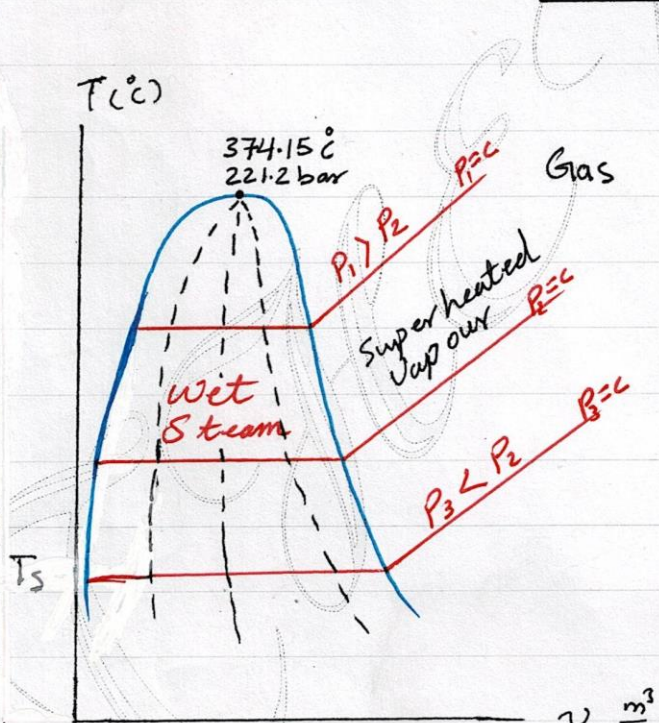 T(°C)
374.15 °C
221.2 bar
P₁=C
Gas
P₁ > P₂
Superheated
Vapour
P₂=C
Wet
Steam
P₃=C
P₃ < P₂
Ts
m³